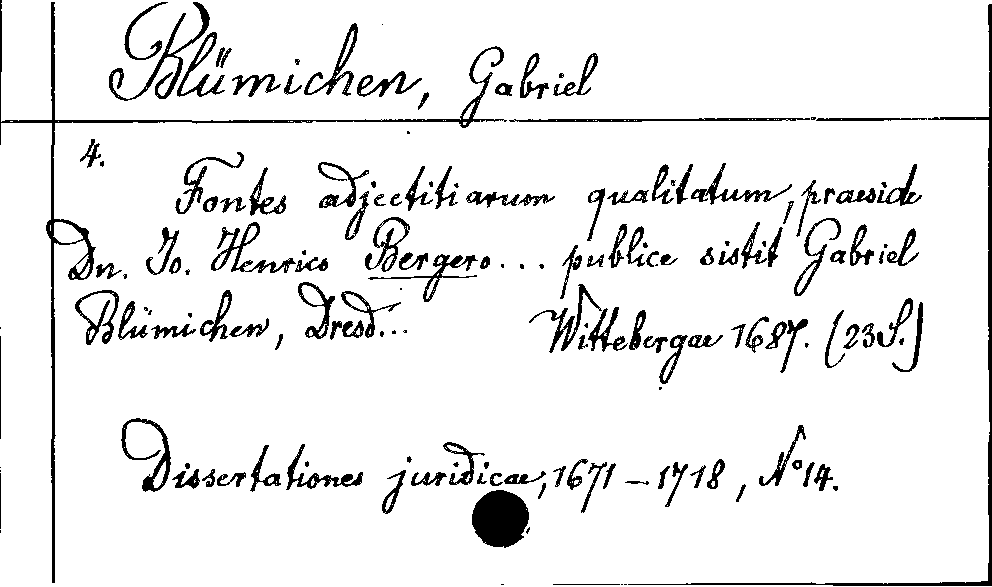 Blümichen, Gabriel
4.
Fontes adjectitiarum qualitatum, praeside
Dn. Jo. Henrico Bergero... publice sistit Gabriel
Blümichen, Dresd...   Wittebergae 1687. (23 S.)
Dissertationes juridicae, 1671 – 1718, N° 14.